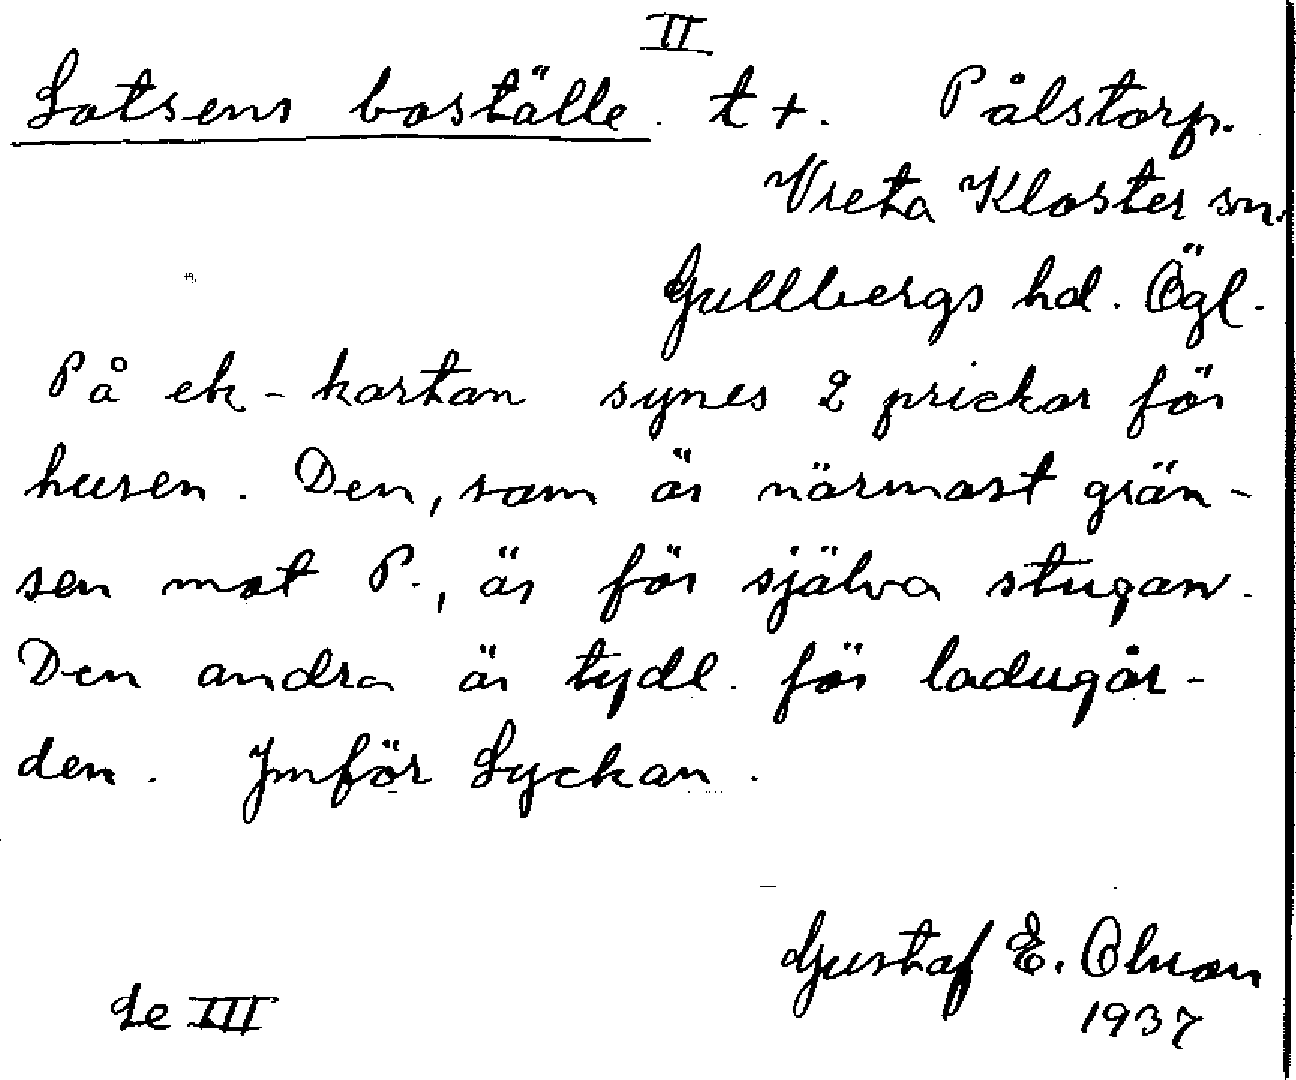 II
Lotsens boställe. t +. Pålstorp.
Vreta Kloster sn.
Gullbergs hd. Ögl.
På ek-kartan synes 2 prickar för
husen. Den, som är närmast grän-
sen mot P., är för själva stugan.
Den andra är tydl. för ladugår-
den. Jmför Lyckan.
Gustaf E. Olsson
Se III
1937